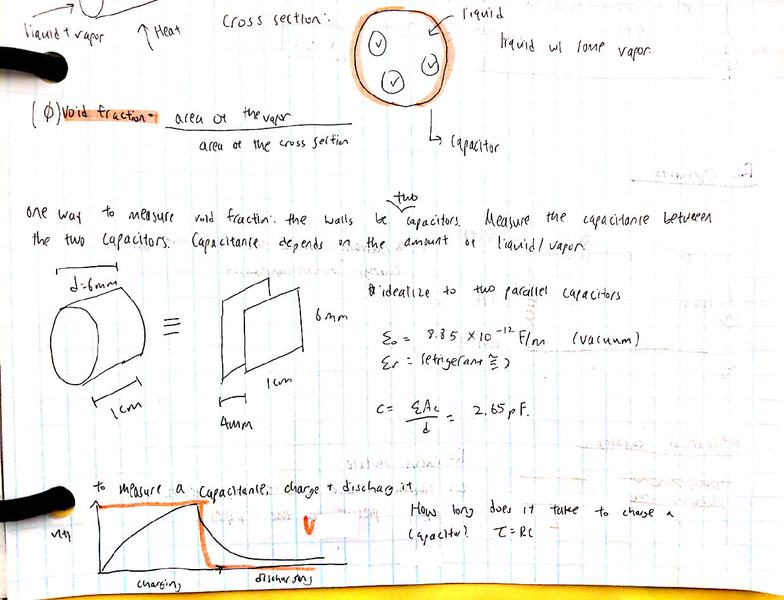 liquid + vapor
Heat
Cross section:
liquid
liquid w/ some vapor.
V
V
V
Capacitor
(φ) Void fraction = area of the vapor
area of the cross section
two
one way to measure void fractin: the walls be capacitors. Measure the capacitance between
the two capacitors. Capacitance depends on the amount of liquid/vapor.
d=6mm
1cm
≡
6mm
1cm
4mm
idealize to two parallel capacitors
ε₀ = 8.85 × 10⁻¹² F/m (vacuum)
εr = refrigerant ≅
C = εAc/d = 2.65 pF.
to measure a capacitance, charge + dischag it
V(t)
V
charging
discharging
How long does it take to charge a
capacitor? τ = RC